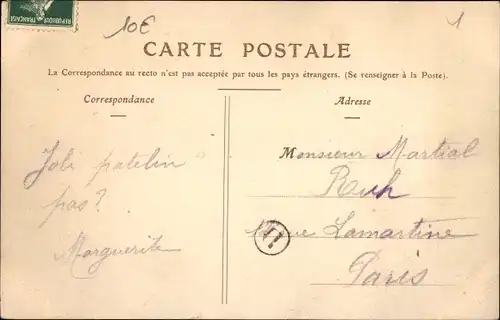 REPUBLIQUE FRANÇAISE
10€
1
CARTE POSTALE
La Correspondance au recto n'est pas acceptée par tous les pays étrangers. (Se renseigner à la Poste).
Correspondance
Joli patelin
pas?
Marguerite
Adresse
Monsieur Martial
Ruh
rue Lamartine
Paris